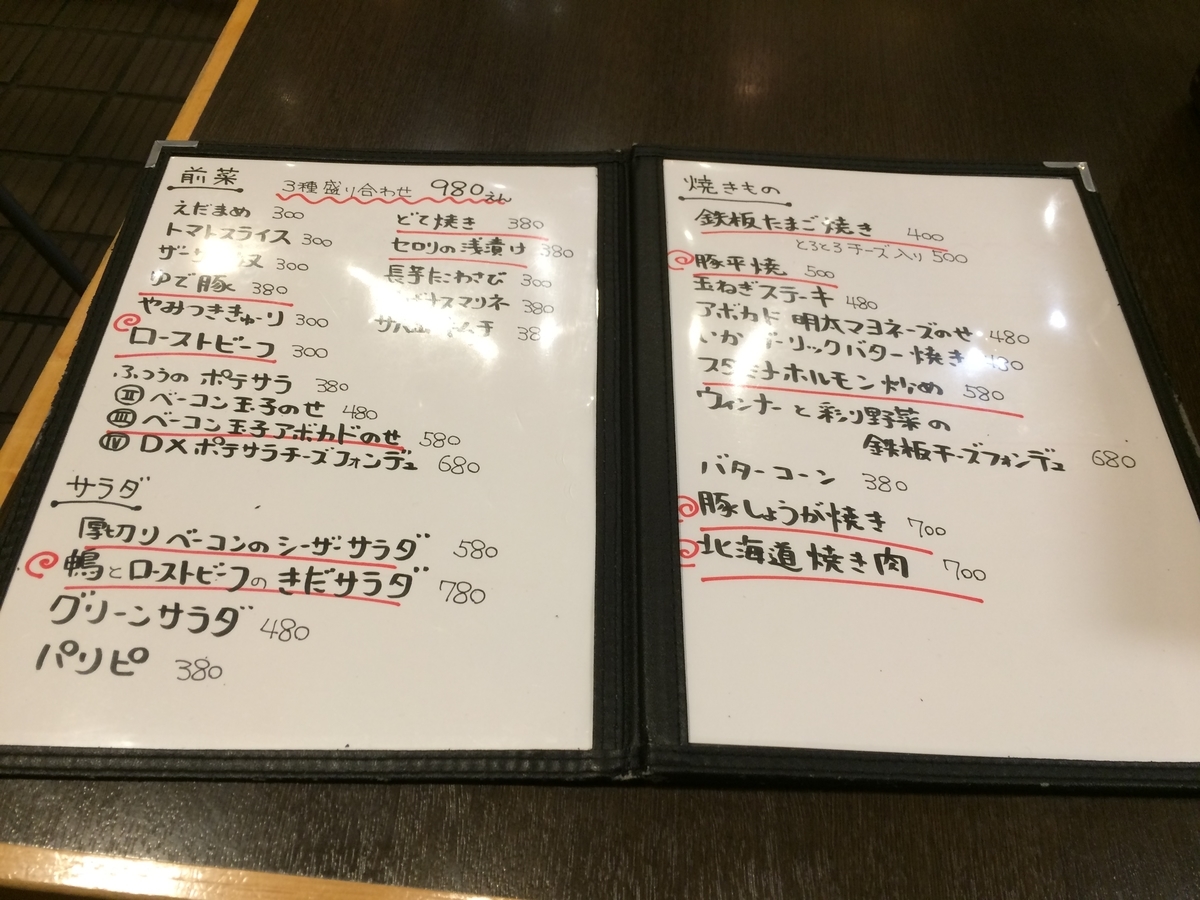 前菜
3種盛り合わせ 980えん
えだまめ 300
トマトスライス 300
300
ゆで豚 380
やみつききゅーり 300
ローストビーフ 300
どて焼き 380
セロリの浅漬け 380
長芋たこわさび 300
マリネ 380
ふつうの ポテサラ 380
Ⅱ ベーコン玉子のせ 480
Ⅲ ベーコン玉子アボカドのせ 580
Ⅳ DXポテサラチーズフォンデュ 680
サラダ
厚切りベーコンのシーザーサラダ 580
鴨とローストビーフのきだサラダ 780
グリーンサラダ 480
パリピ 380
焼きもの
鉄板たまご焼き 400
とろとろチーズ入り 500
豚平焼 500
玉ねぎステーキ 480
アボカド 明太マヨネーズのせ 480
いかガーリックバター焼き
スタミナホルモン炒め 580
ウィンナーと彩り野菜の
鉄板チーズフォンデュ 680
バターコーン 380
豚しょうが焼き 700
北海道焼き肉 700